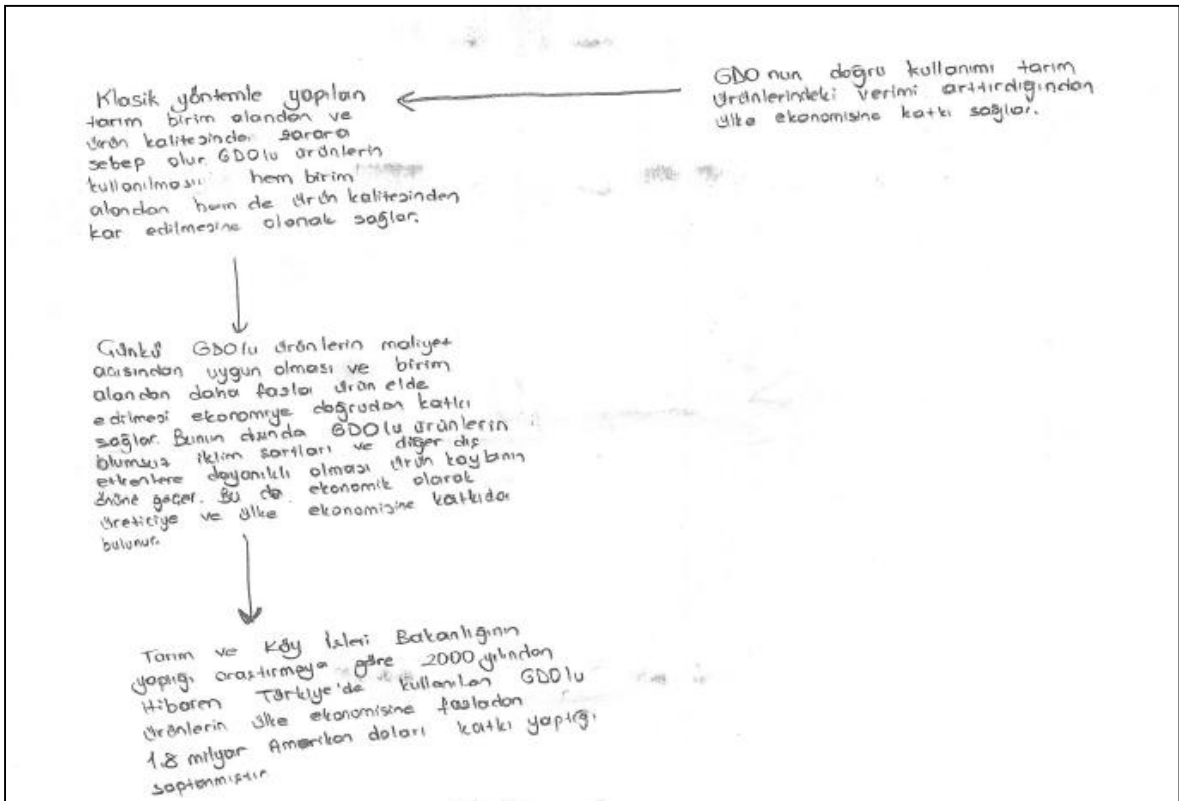 GDO nun doğru kullanımı tarım
ürünlerindeki verimi arttırdığından
ülke ekonomisine katkı sağlar.
Klasik yöntemle yapılan
tarım birim alandan ve
ürün kalitesinden zarara
sebep olur. GDOlu ürünlerin
kullanılması hem birim
alandan hem de ürün kalitesinden
kar edilmesine olanak sağlar.
Çünkü GDOlu ürünlerin maliyet
açısından uygun olması ve birim
alandan daha fazla ürün elde
edilmesi ekonomiye doğrudan katkı
sağlar. Bunun dışında GDOlu ürünlerin
olumsuz iklim şartları ve diğer dış
etkenlere dayanıklı olması ürün kaybının
önüne geçer. Bu da ekonomik olarak
üreticiye ve ülke ekonomisine katkıda
bulunur.
Tarım ve Köy İşleri Bakanlığının
yaptığı araştırmaya göre 2000 yılından
itibaren Türkiye'de kullanılan GDOlu
ürünlerin ülke ekonomisine fazladan
1.8 milyar Amerikan doları katkı yaptığı
saptanmıştır